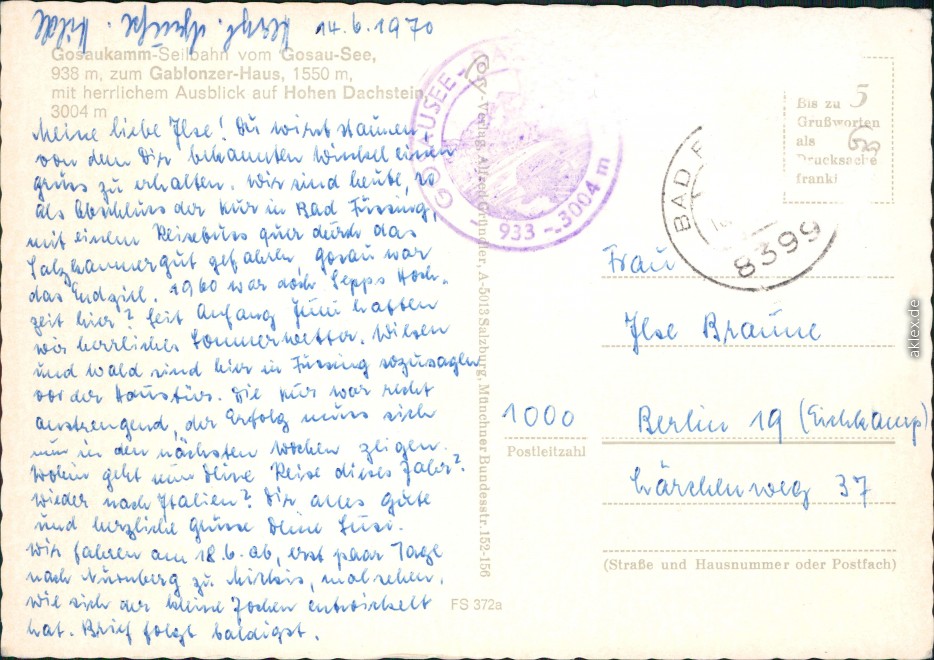 14.6.1970
Gosaukamm-Seilbahn vom Gosau-See,
938 m, zum Gablonzer-Haus, 1550 m,
mit herrlichem Ausblick auf Hohen Dachstein,
3004 m
Meine liebe Ilse! Du wirst staunen,
von dem Dir bekannten Winkel einen
Gruss zu erhalten. Wir sind heute, so
als Abschluss der Kur in Bad Füssing,
mit einem Reisebus quer durch das
Salzkammergut gefahren Gosau war
das Endziel. 1960 war doch Sepps Hoch-
zeit hier? Seit Anfang Juni hatten
wir herrliches Sommerwetter. Wiesen
und Wald sind hier in Füssing sozusagen
vor der Haustür. Die Kur war recht
anstrengend, der Erfolg muss sich
nun in den nächsten Wochen zeigen.
Wohin geht nun Deine Reise dieses Jahr?
Wieder nach Italien? Dir alles Gute
und herzliche Grüsse Deine Susi.
Wir fahren am 18.6. ab, erst paar Tage
nach Nürnberg zu, mal sehen,
wie sich der kleine Jochen entwickelt
hat. Brief folgt baldigst.
GOSAUSEE
933 - 3004 m
Orig.-Verlag Alfred Gründler, A-5013 Salzburg, Münchner Bundesstr. 152-156
FS 372a
BAD F
8399
Bis zu 5
Grußworten
als
Drucksache
franki
Frau
Ilse Braune
1000 Berlin 19 (Eichkamp)
Postleitzahl
Lärchenweg 37
(Straße und Hausnummer oder Postfach)
aklex.de